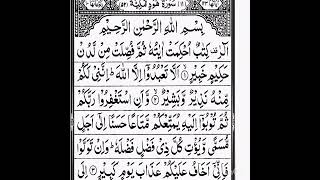 سُوْرَةُ هُوْدٍ مَّكِّيَّةٌ
بِسْمِ اللّٰهِ الرَّحْمٰنِ الرَّحِيْمِ
الٓرٰ كِتٰبٌ اُحْكِمَتْ اٰيٰتُهٗ ثُمَّ فُصِّلَتْ مِنْ لَّدُنْ
حَكِيْمٍ خَبِيْرٍ ۱ اَلَّا تَعْبُدُوْٓا اِلَّا اللّٰهَ اِنَّنِيْ لَكُمْ
مِّنْهُ نَذِيْرٌ وَّبَشِيْرٌ ۲ وَّاَنِ اسْتَغْفِرُوْا رَبَّكُمْ
ثُمَّ تُوْبُوْٓا اِلَيْهِ يُمَتِّعْكُمْ مَّتَاعًا حَسَنًا اِلٰٓى اَجَلٍ
مُّسَمًّى وَّيُؤْتِ كُلَّ ذِيْ فَضْلٍ فَضْلَهٗ وَاِنْ تَوَلَّوْا
فَاِنِّيْٓ اَخَافُ عَلَيْكُمْ عَذَابَ يَوْمٍ كَبِيْرٍ ۳ اِلَى